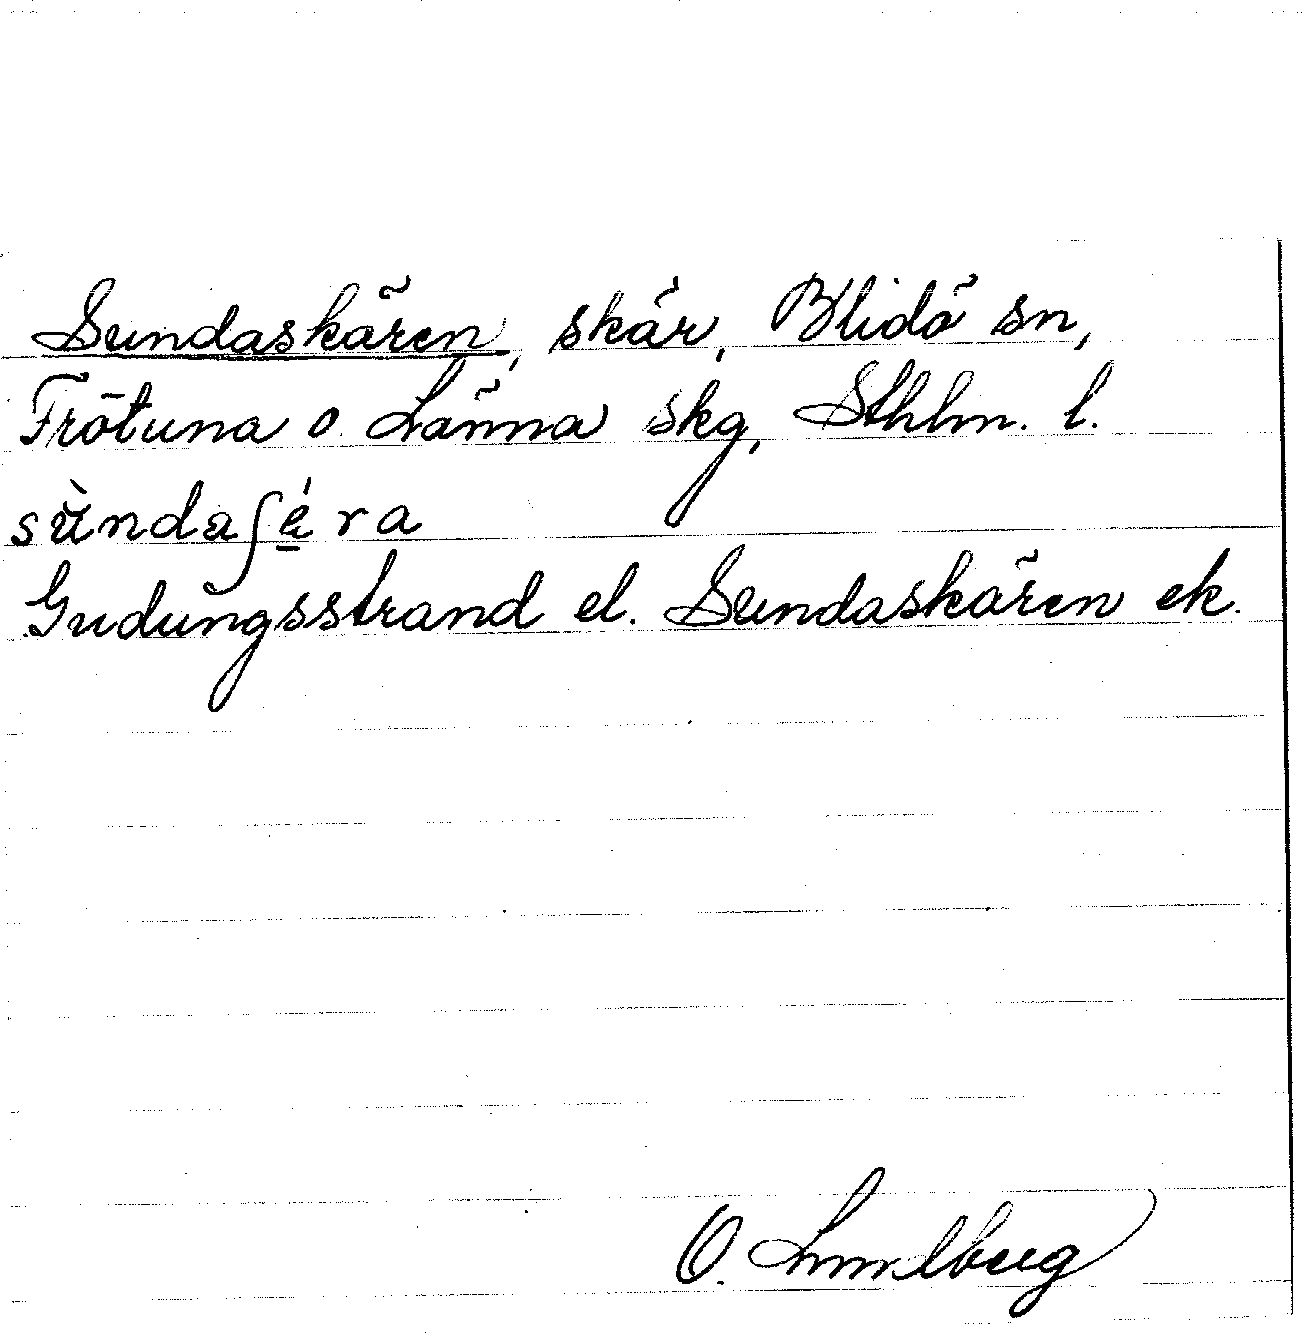 Sundaskären, skär, Blidö sn,
Frötuna o. Länna skg, Sthlm. l.
sùndaʃé̱ra
Gudungsstrand el. Sundaskären ek.
O. Lundberg